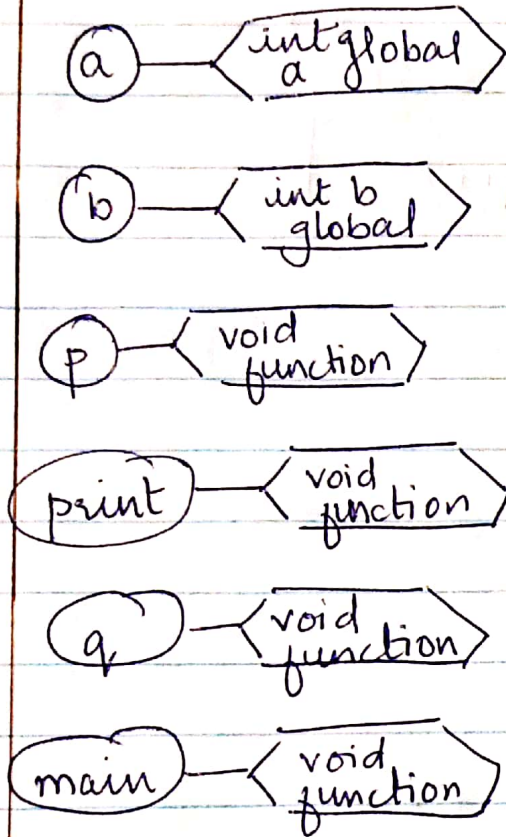 a int global
a
b int b
global
p void
function
print void
function
q void
function
main void
function